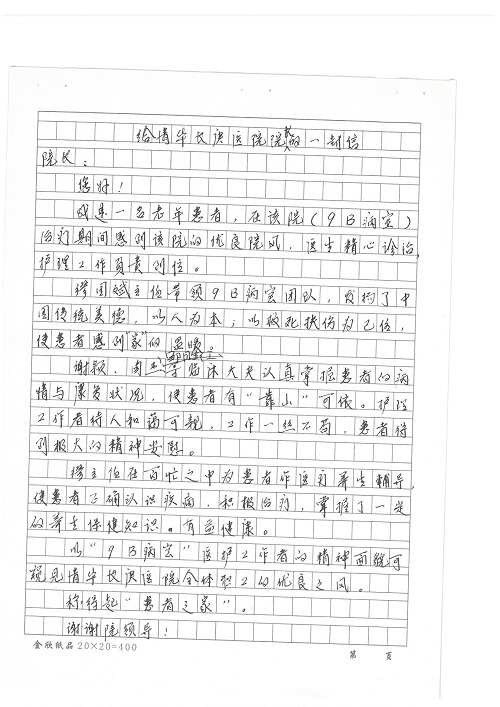 给清华长庚医院院长的一封信
院长：
您好！
我是一名老年患者，在该院（9B病室）
治疗期间感到该院的优良院风，医生精心诊治，
护理工作负责到位。
缪国斌主任带领9B病室团队，发扬了中
国传统美德，以人为本；以救死扶伤为己任，
使患者感到“家”的温暖。
谢颖，周 李 临床大夫认真掌握患者的病
情与康复状况，使患者有“靠山”可依。护理
工作者待人和蔼可亲，工作一丝不苟，患者得
到极大的精神安慰。
缪主任在百忙之中为患者作医疗养生辅导，
使患者正确认识疾病，积极治疗，掌握了一定
的养生保健知识。有益健康。
以“9B病室”医护工作者的精神面貌可
窥见清华长庚医院全体职工的优良之风。
称得起“患者之家”。
谢谢院领导！
金欣纸品 20×20=400 第 页